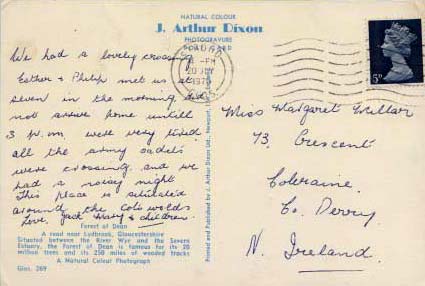 NATURAL COLOUR
J. Arthur Dixon
PHOTOGRAVURE
POST CARD
We had a lovely crossing
Esther & Philip met us at
seven in the morning,
not arrive home untill
3 p.m. were very tired
all the army cadets
were crossing and we
had a noisy night
This place is situated
around the Cotswolds
Love, Jack Mary & children.
Forest of Dean
A road near Lydbrook, Gloucestershire
Situated between the River Wye and the Severn
Estuary, the Forest of Dean is famous for its 20
million trees and its 250 miles of wooded tracks
A Natural Colour Photograph
Glos. 269
Printed and Published by J. Arthur Dixon Ltd., Newport,
-PM
20 JLY
1975
GLOS.
5P
Miss Margaret Millar
73, Crescent
Coleraine,
Co. Derry
N. Ireland.